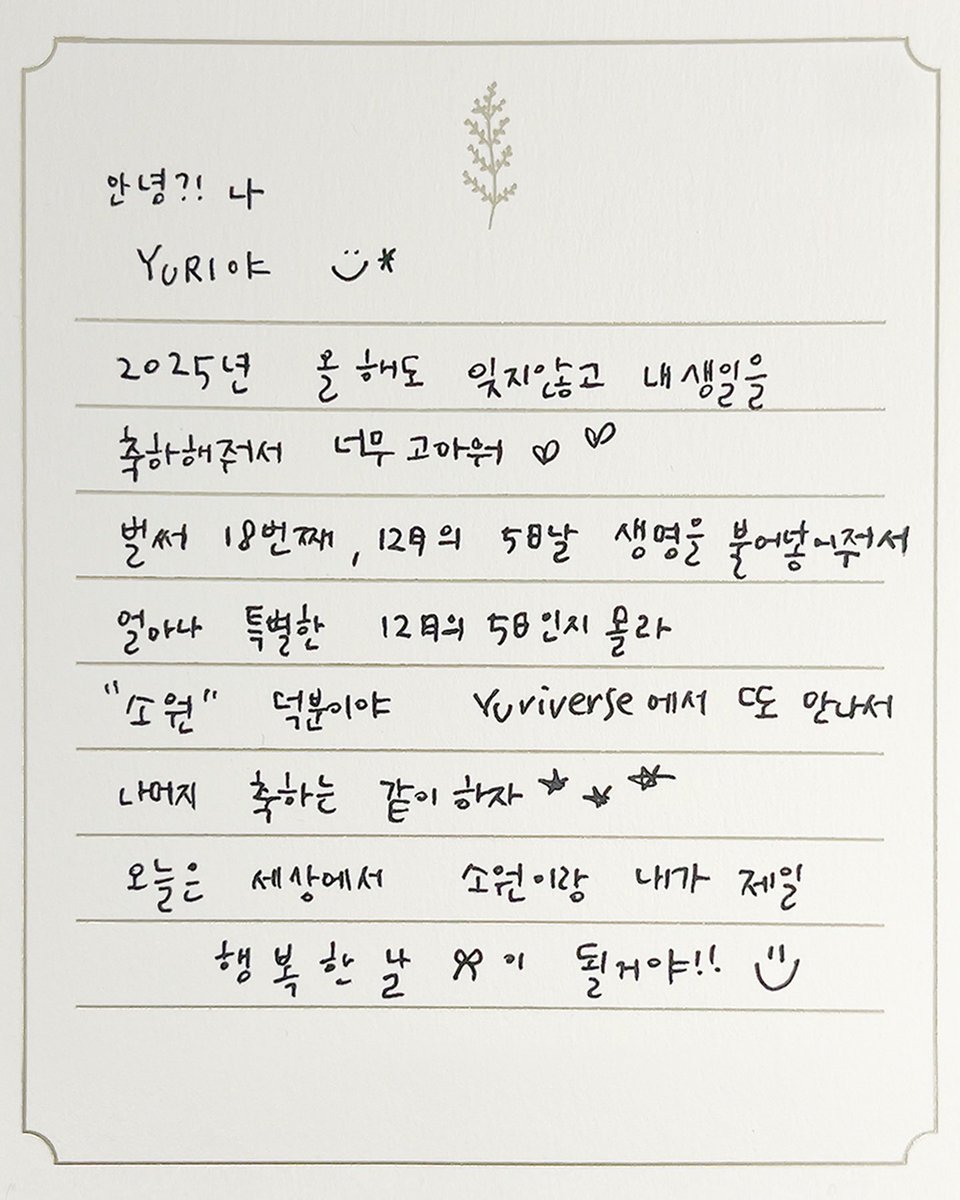 안녕?! 나
YURI야
2025년 올해도 잊지않고 내 생일을
축하해줘서 너무 고마워 ♡ ♡
벌써 18번째, 12月의 5日날 생명을 불어넣어줘서
얼마나 특별한 12月의 5日인지 몰라
"소원" 덕분이야 Yuriverse에서 또 만나서
나머지 축하는 같이 하자 ★ ★ ★
오늘은 세상에서 소원이랑 내가 제일
행복한 날 이 될거야!!